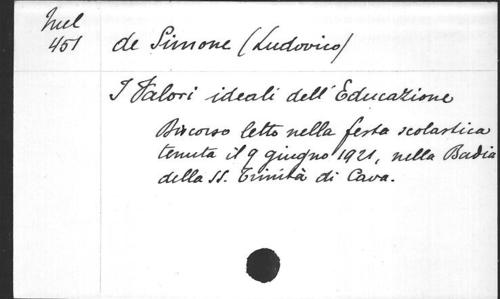 Mel
451
de Simone (Ludovico)
I Valori ideali dell'Educazione
Discorso letto nella festa scolastica
tenuta il 9 giugno 1921, nella Badia
della SS. Trinità di Cava.